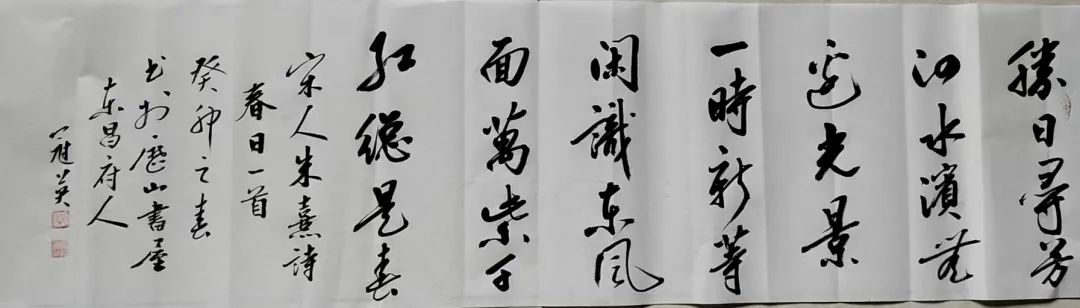 勝日尋芳
泗水濱無
邊光景
一時新等
闲識東风
面萬紫千
紅總是春
宋人朱熹詩
春日一首
癸卯之春
书於歷山書屋
东昌府人
冠英